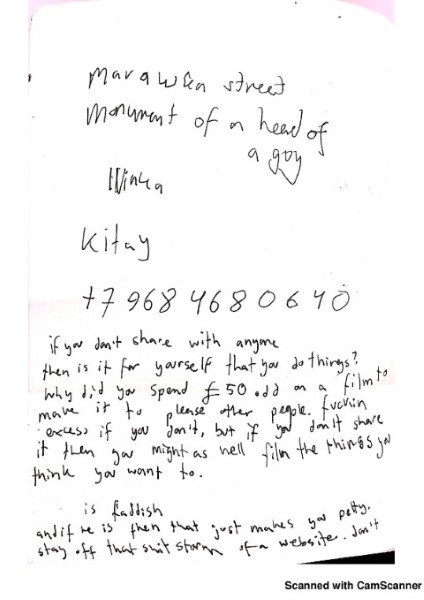 street
Monument of a head of
a goy
Kitay
+7 968 468 0640
if you don't share with anyone
then is it for yourself that you do things?
why did you spend £50 odd on a film to
make it to please other people. fuckin
excess if you don't, but if you don't share
it then you might as well film the things you
think you want to.
is faddish
and if he is then that just makes you petty.
stay off that shit storm of a website. don't
Scanned with CamScanner